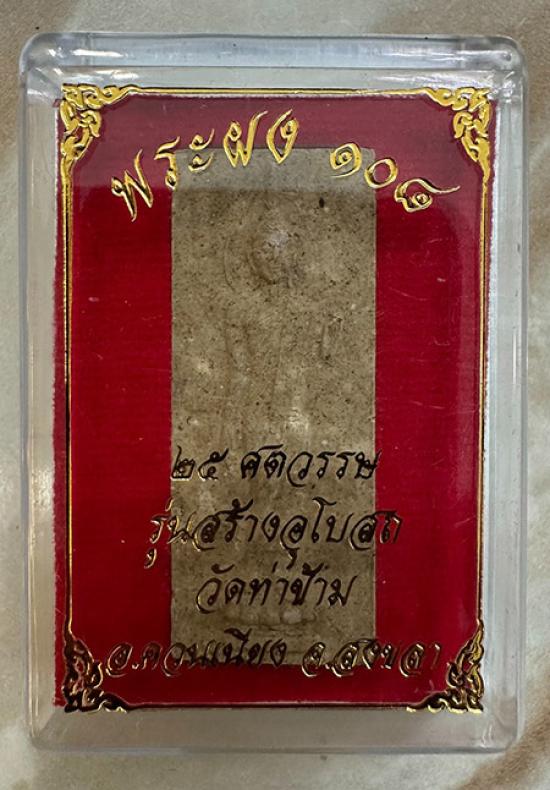 พระผง ๑๐๘
๒๕ ศตวรรษ
รุ่นสร้างอุโบสถ
วัดท่าข้าม
อ.ควนเนียง จ.สงขลา